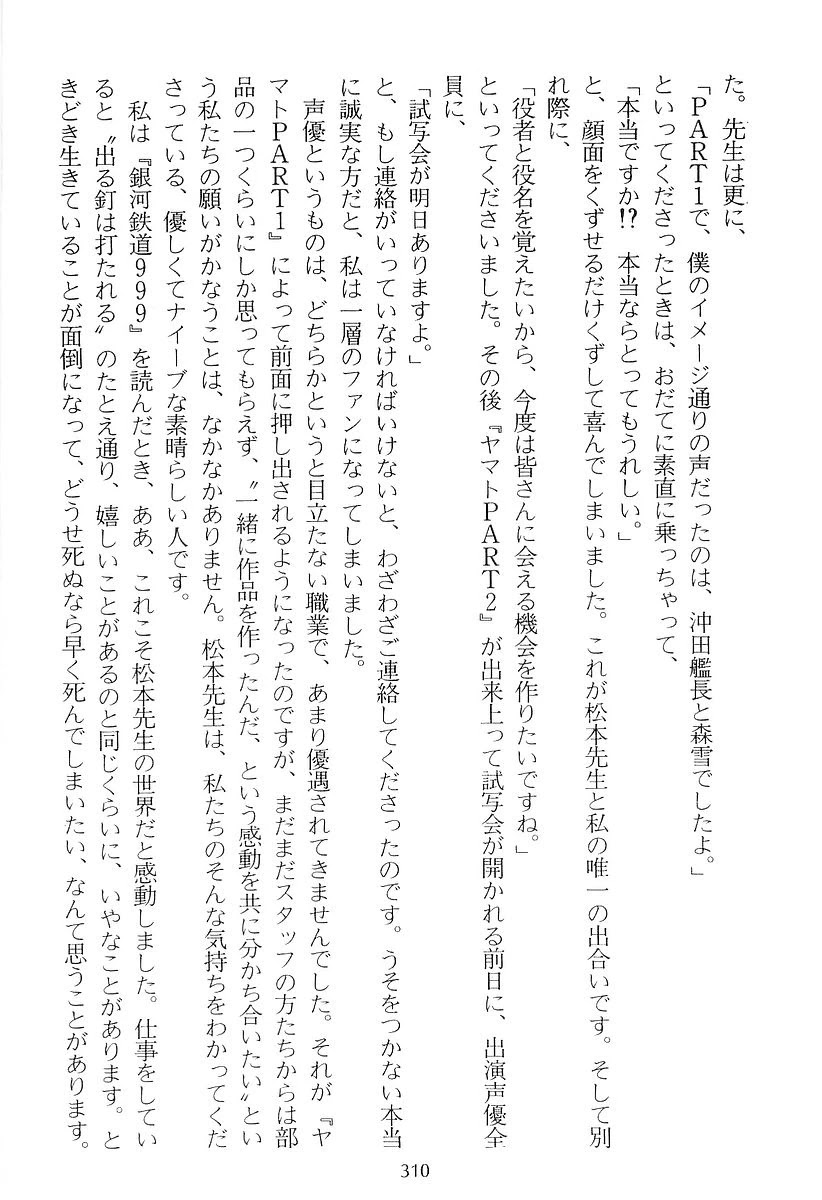 た。先生は更に、
「ＰＡＲＴ１で、僕のイメージ通りの声だったのは、沖田艦長と森雪でしたよ。」
といってくださったときは、おだてに素直に乗っちゃって、
「本当ですか⁉　本当ならとってもうれしい。」
と、顔面をくずせるだけくずして喜んでしまいました。これが松本先生と私の唯一の出合いです。そして別
れ際に、
「役者と役名を覚えたいから、今度は皆さんに会える機会を作りたいですね。」
といってくださいました。その後『ヤマトＰＡＲＴ２』が出来上って試写会が開かれる前日に、出演声優全
員に、
「試写会が明日ありますよ。」
と、もし連絡がいっていなければいけないと、わざわざご連絡してくださったのです。うそをつかない本当
に誠実な方だと、私は一層のファンになってしまいました。
　声優というものは、どちらかというと目立たない職業で、あまり優遇されてきませんでした。それが『ヤ
マトＰＡＲＴ１』によって前面に押し出されるようになったのですが、まだまだスタッフの方たちからは部
品の一つくらいにしか思ってもらえず、〝一緒に作品を作ったんだ、という感動を共に分かち合いたい〟とい
う私たちの願いがかなうことは、なかなかありません。松本先生は、私たちのそんな気持ちをわかってくだ
さっている、優しくてナイーブな素晴らしい人です。
　私は『銀河鉄道９９９』を読んだとき、ああ、これこそ松本先生の世界だと感動しました。仕事をしてい
ると〝出る釘は打たれる〟のたとえ通り、嬉しいことがあるのと同じくらいに、いやなことがあります。と
きどき生きていることが面倒になって、どうせ死ぬなら早く死んでしまいたい、なんて思うことがあります。
310